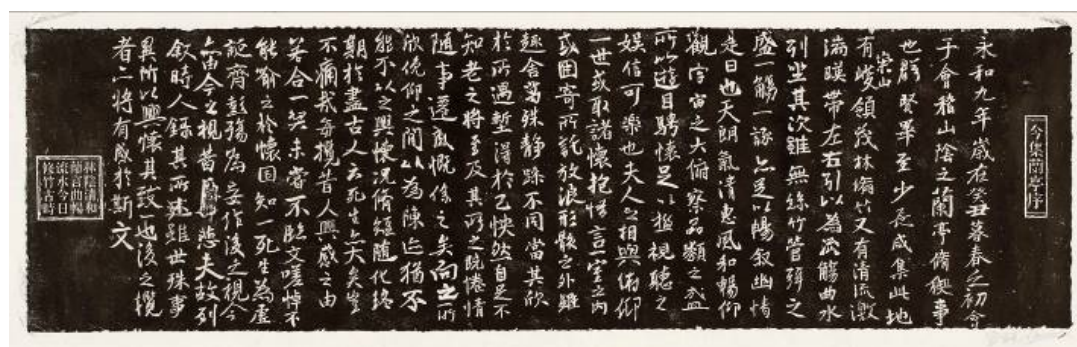 兮集蘭亭序
永和九年歲在癸丑暮春之初會
于會稽山陰之蘭亭脩禊事
也群賢畢至少長咸集此地
有崇山峻領茂林脩竹又有清流激
湍暎帶左右引以為流觴曲水
列坐其次雖無絲竹管弦之
盛一觴一詠亦足以暢敘幽情
是日也天朗氣清惠風和暢仰
觀宇宙之大俯察品類之盛
所以遊目騁懷足以極視聽之
娛信可樂也夫人之相與俯仰
一世或取諸懷抱悟言一室之內
或因寄所託放浪形骸之外雖
趣舍萬殊靜躁不同當其欣
於所遇暫得於己怏然自足不
知老之將至及其所之既惓情
隨事遷感慨係之矣向之所
欣俛仰之間以為陳迹猶不
能不以之興懷況脩短隨化終
期於盡古人云死生亦大矣豈
不痛哉每攬昔人興感之由
若合一契未嘗不臨文嗟悼不
能喻之於懷固知一死生為虛
誕齊彭殤為妄作後之視今
亦由今之視昔悲夫故列
敘時人錄其所述雖世殊事
異所以興懷其致一也後之攬
者亦將有感於斯文
林陰清和
蘭言曲暢
流水今日
修竹古時